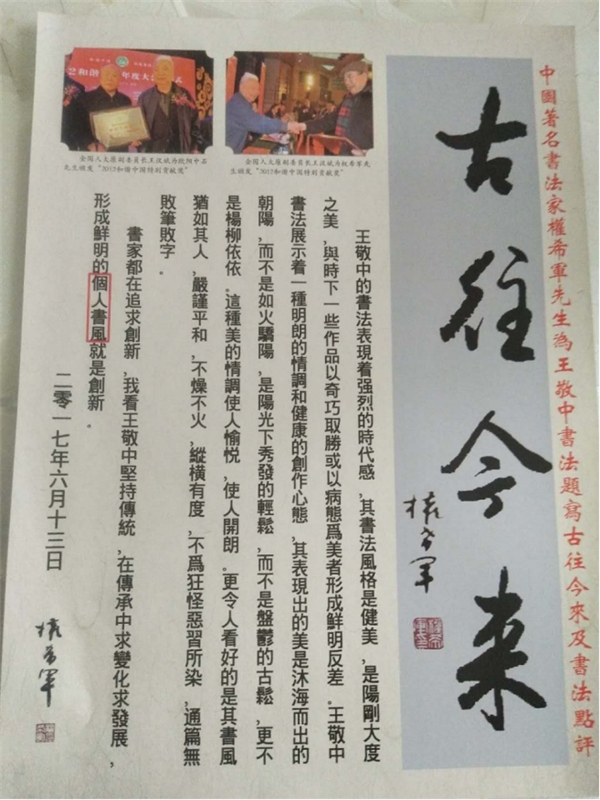 中國著名書法家權希軍先生為王敬中書法題寫古往今來及書法點評
古往今来
權希軍
全国人大原副委员长王汉斌为权希军先
生颁发“2013和谐中国特别贡献奖”
全国人大原副委员长王汉斌为欧阳中石
先生颁发“2013和谐中国特别贡献奖”
王敬中的書法表現着强烈的時代感，其書法風格是健美，是陽剛大度
之美，與時下一些作品以奇巧取勝或以病態爲美者形成鮮明反差。王敬中
書法展示着一種明朗的情調和健康的創作心態，其表現出的美是沐海而出的
朝陽，而不是如火驕陽，是陽光下秀發的輕鬆，而不是盤鬱的古鬆，更不
是楊柳依依。這種美的情調使人愉悦，使人開朗。更令人看好的是其書風
猶如其人，嚴謹平和，不燥不火，縱橫有度，不爲狂怪惡習所染，通篇無
敗筆敗字。
書家都在追求創新，我看王敬中堅持傳統，在傳承中求變化求發展，
形成鮮明的個人書風就是創新。
二零一七年六月十三日
權希軍